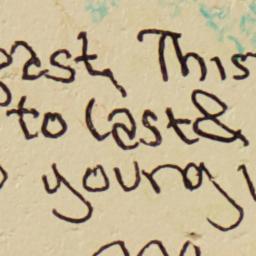 past, This
to last &
young